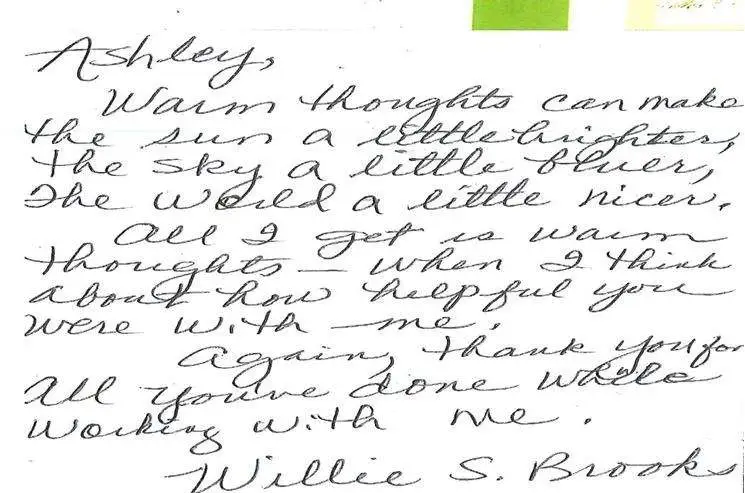 Ashley,
Warm thoughts can make
the sun a little brighter,
the sky a little bluer,
The world a little nicer.
All I get is warm
thoughts — when I think
about how helpful you
were with me.
Again, thank you for
all youve done while
working with me.
Willie S. Brooks